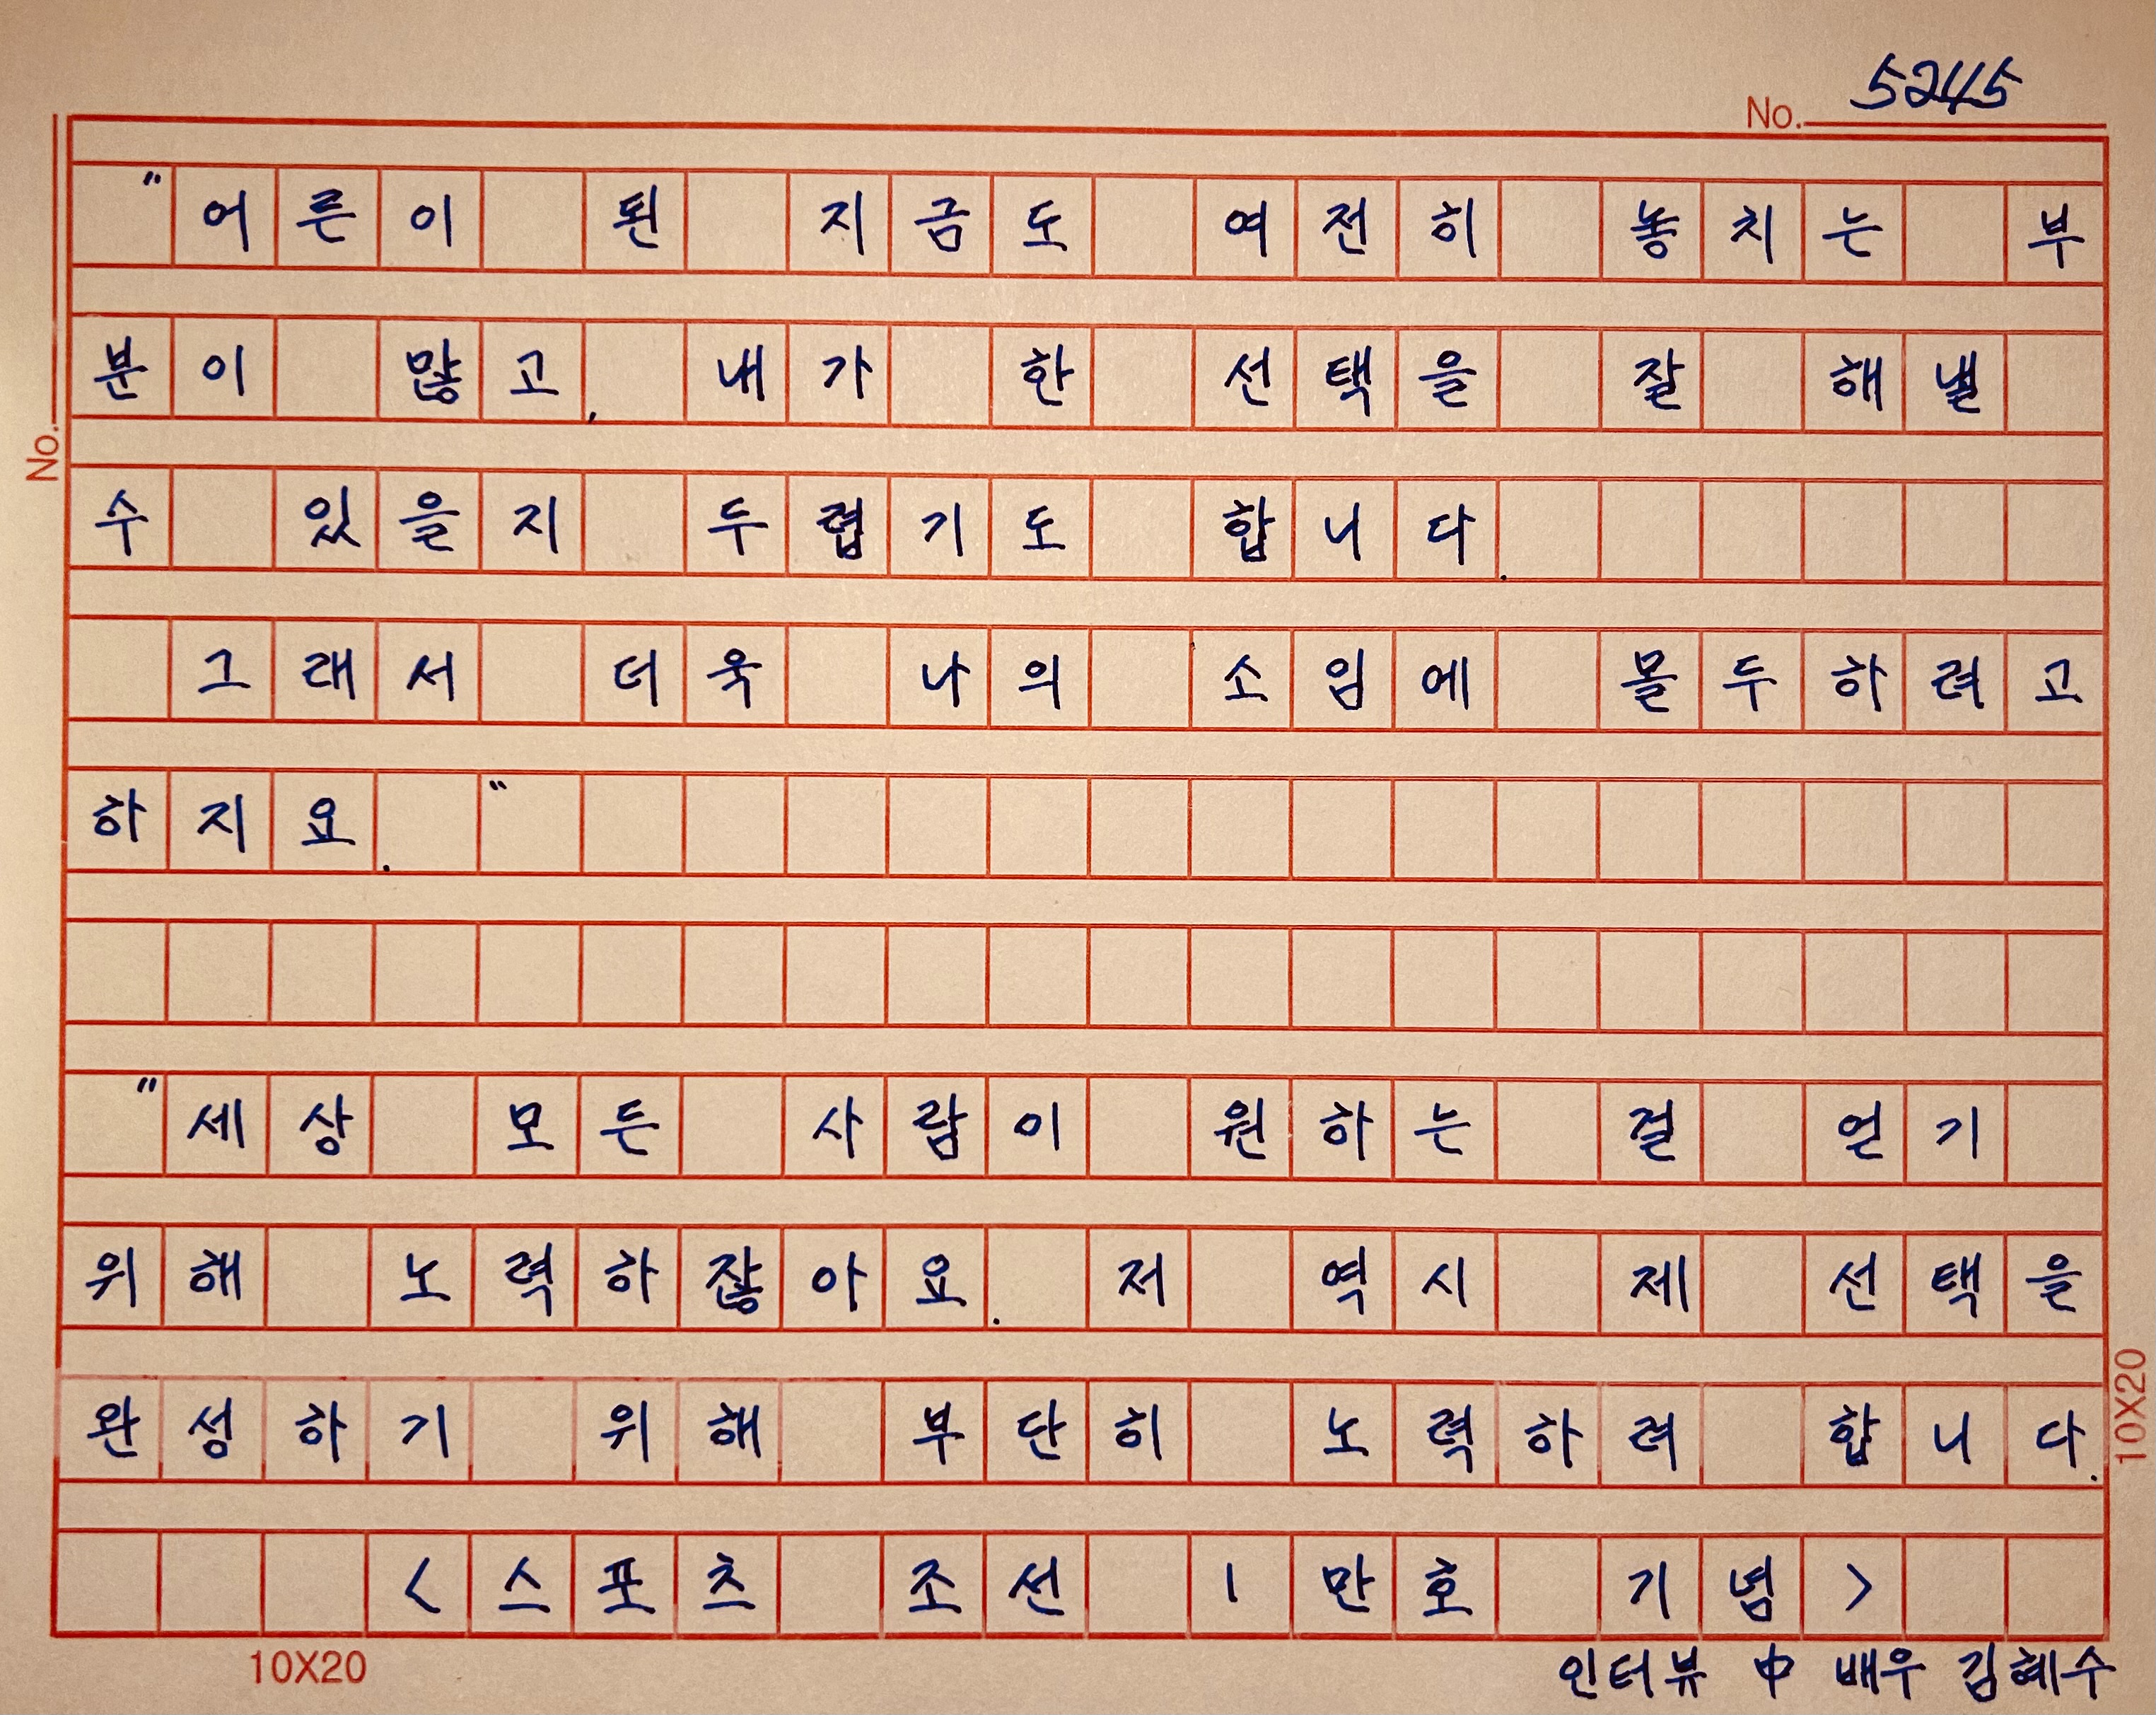 No. 5245
"어른이 된 지금도 여전히 놓치는 부
분이 많고, 내가 한 선택을 잘 해낼
수 있을지 두렵기도 합니다.
그래서 더욱 나의 소임에 몰두하려고
하지요."
"세상 모든 사람이 원하는 걸 얻기
위해 노력하잖아요. 저 역시 제 선택을
완성하기 위해 부단히 노력하려 합니다.
<스포츠 조선 1만호 기념>
인터뷰 中 배우 김혜수
No.
10X20
10X20